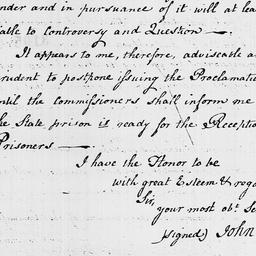 under and in pursuance of it will at lea
able to controversy and Question —.
It appears to me, therefore, adviseable a
rudent to postpone issuing the Proclamati
ntil the commissioners shall inform me
he State prison is ready for the Reception
Prisoners —
I have the Honor to be
with great Esteem & rega
Sir,
your most obt. Se
(signed) John